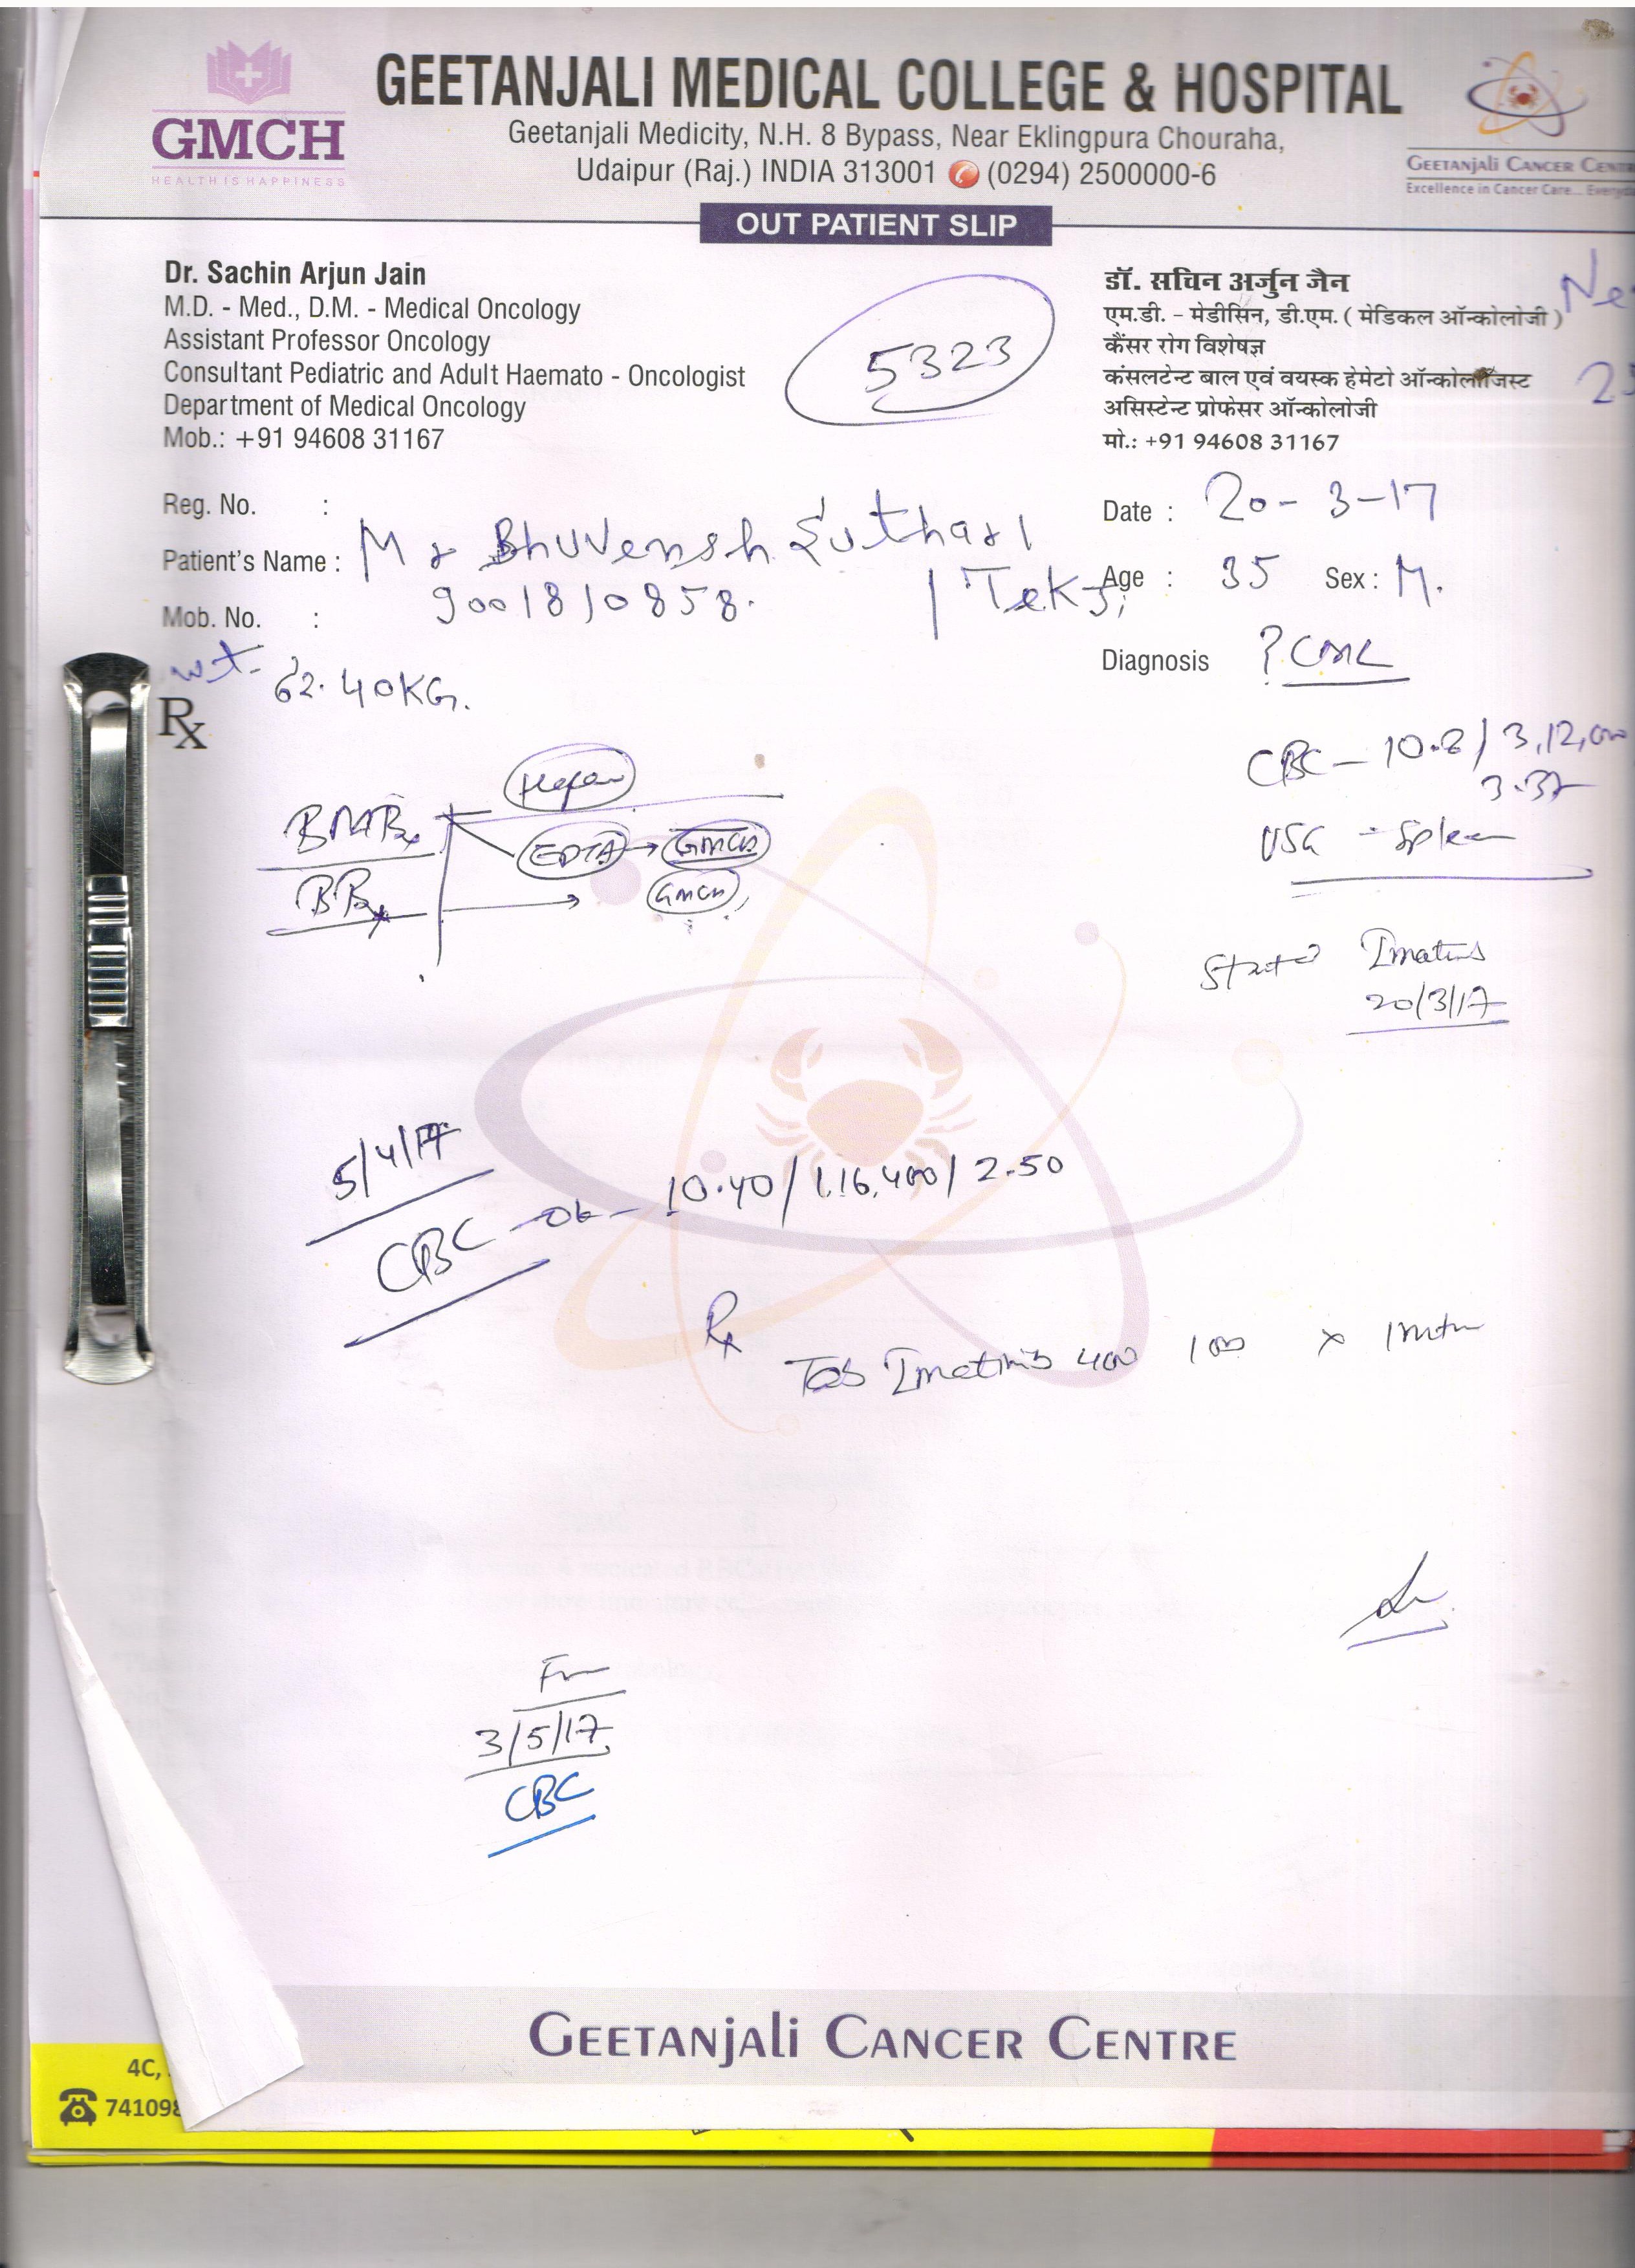 GMCH
HEALTH IS HAPPINESS
GEETANJALI MEDICAL COLLEGE & HOSPITAL
Geetanjali Medicity, N.H. 8 Bypass, Near Eklingpura Chouraha,
Udaipur (Raj.) INDIA 313001 (0294) 2500000-6
GEETANJALI CANCER
Excellence in Cancer Care...
OUT PATIENT SLIP
Dr. Sachin Arjun Jain
M.D. - Med., D.M. - Medical Oncology
Assistant Professor Oncology
Consultant Pediatric and Adult Haemato - Oncologist
Department of Medical Oncology
Mob.: +91 94608 31167
5323
डॉ. सचिन अर्जुन जैन
एम.डी. - मेडीसिन, डी.एम. ( मेडिकल ऑन्कोलोजी )
कैंसर रोग विशेषज्ञ
कंसलटेन्ट बाल एवं वयस्क हेमेटो ऑन्कोलॉजिस्ट
असिस्टेन्ट प्रोफेसर ऑन्कोलोजी
मो.: +91 94608 31167
Reg. No. :
Date : 20-3-17
Patient's Name : Mr Bhuvensh Suthar
Age : 35 Sex : M.
Mob. No. : 9001810858.
Diagnosis ? CML
wt- 62.40KG.
Rx
CBC - 10.8/3,12,000
3.37
USG - Spleen
BMBx
EDTA → GMCH
BBx → GMCH
Imatinib
20/3/17
5/4/17
CBC - 10.40/1,16,400/2.50
Rx
Tab Imatinib 400
3/5/17
CBC
GEETANJALI CANCER CENTRE
4C,
74109